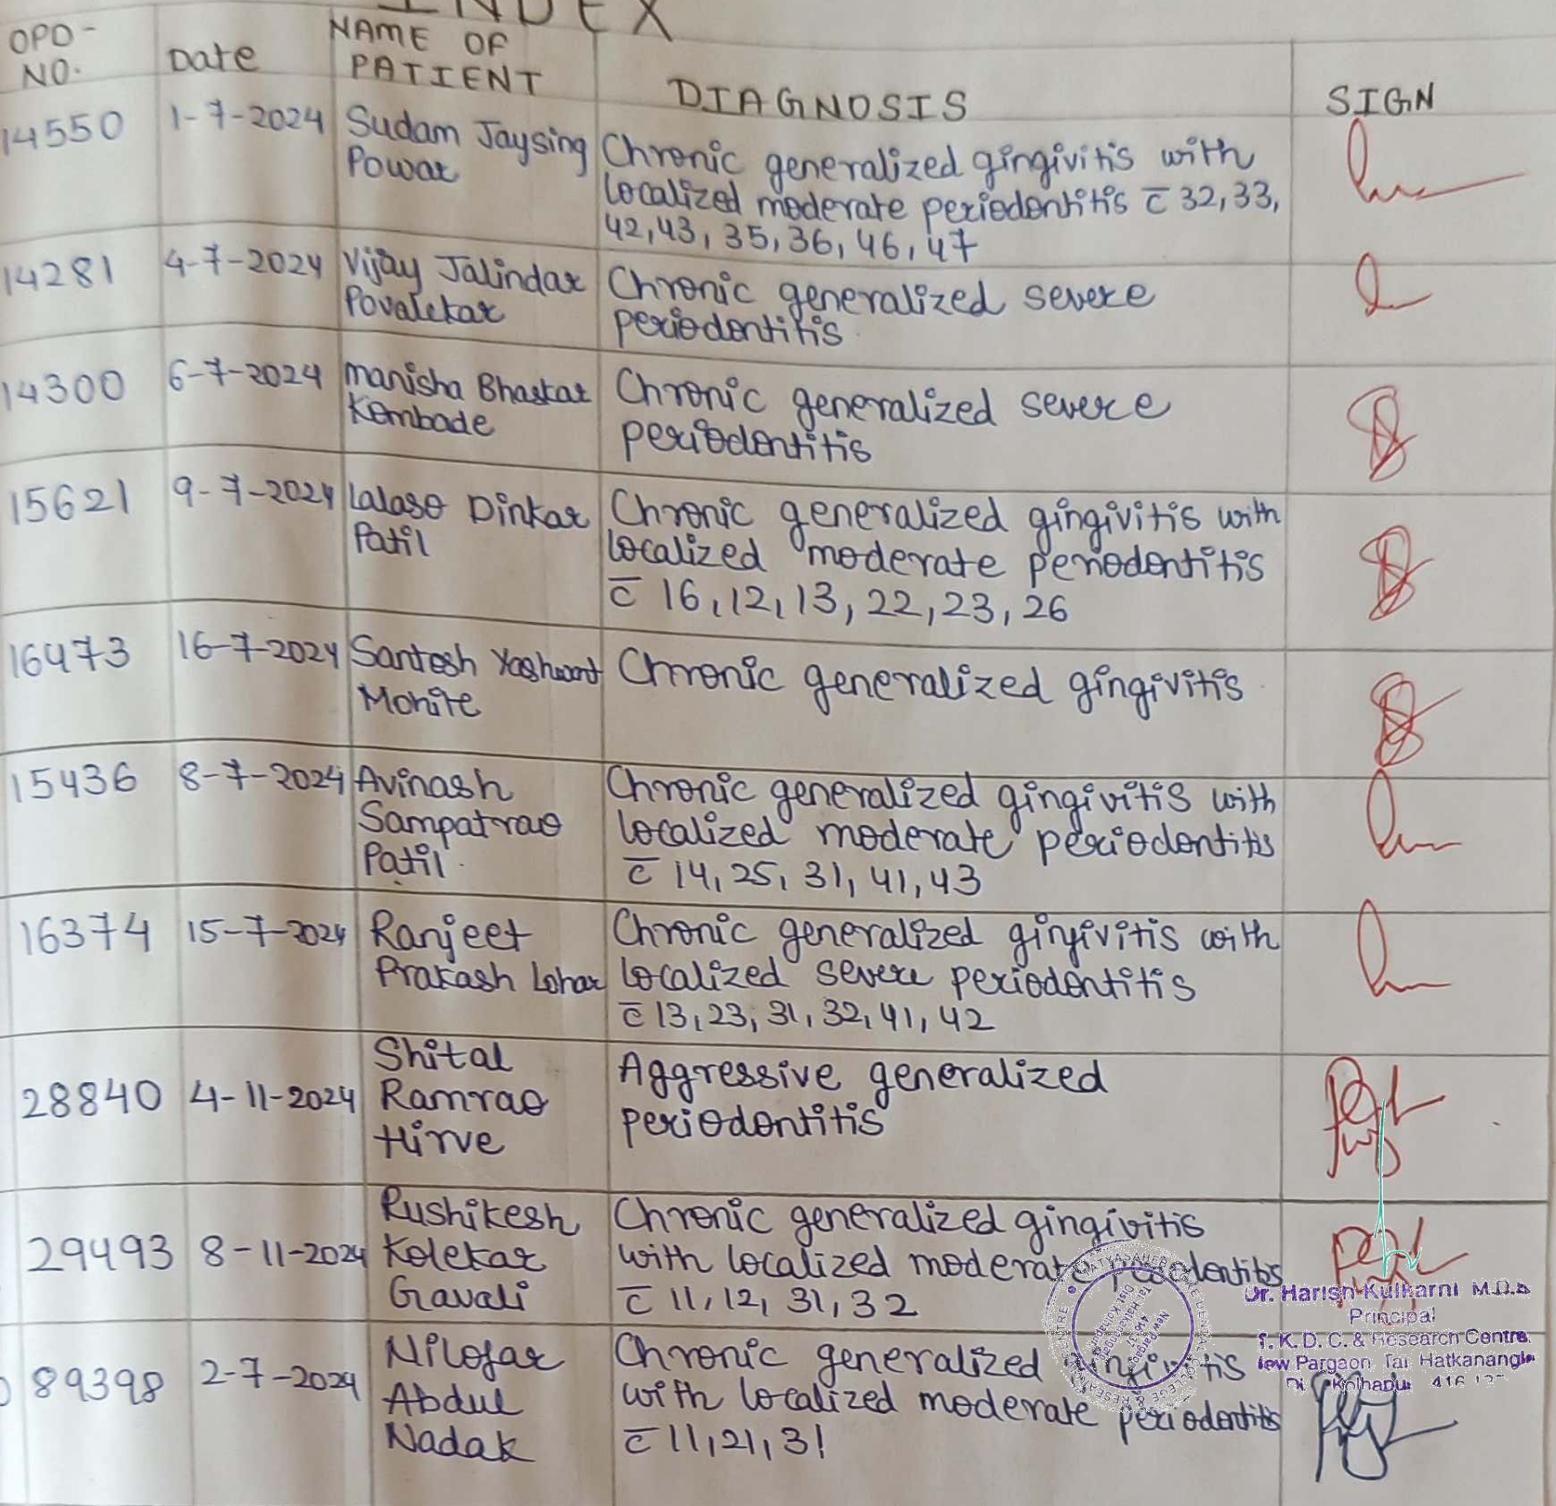 INDEX
OPD-
NO.
Date
NAME OF
PATIENT
DIAGNOSIS
SIGN
14550
1-7-2024
Sudam Jaysing
Powar
Chronic generalized gingivitis with
localized moderate periodontitis c̄ 32,33,
42,43, 35,36, 46, 47
14281
4-7-2024
Vijay Jalindar
Povalekar
Chronic generalized severe
periodontitis.
14300
6-7-2024
Manisha Bhaskar
Kembade
Chronic generalized severe
periodontitis
15621
9-7-2024
Lalaso Dinkar
Patil
Chronic generalized gingivitis with
localized moderate periodontitis
c̄ 16,12,13,22,23,26
16473
16-7-2024
Santosh Yashwant
Mohite
Chronic generalized gingivitis
15436
8-7-2024
Avinash
Sampatrao
Patil.
Chronic generalized gingivitis with
localized moderate periodontitis
c̄ 14,25,31,41,43
16374
15-7-2024
Ranjeet
Prakash Lohar
Chronic generalized gingivitis with
localized severe periodontitis
c̄ 13,23,31,32,41,42
28840
4-11-2024
Shital
Ramrao
Hirve
Aggressive generalized
periodontitis
29493
8-11-2024
Rushikesh
Kolekar
Gavali
Chronic generalized gingivitis
with localized moderate periodontitis
c̄ 11,12,31,32
89398
2-7-2024
Nilofar
Abdul
Nadak
Chronic generalized gingivitis
with localized moderate periodontitis
c̄ 11,21,31
Dr. Harish Kulkarni M.D.S
Principal
T. K. D. C. & Research Centre
New Pargaon Tal Hatkanangle
Kolhapur 416